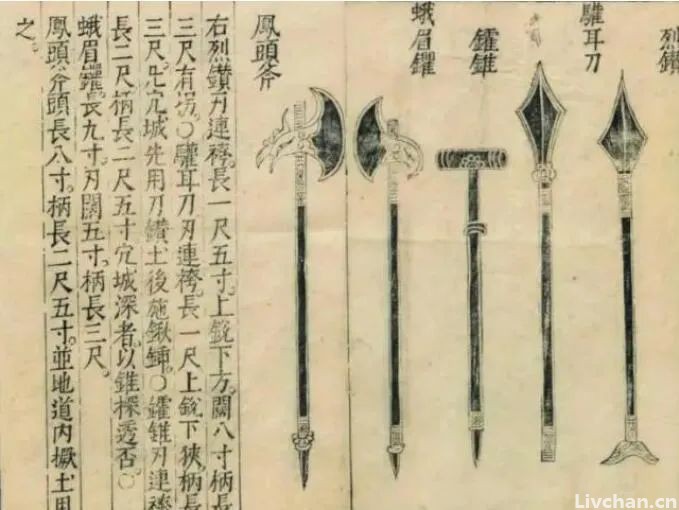 烈鑽
驢耳刀
钁錐
蛾眉钁
鳳頭斧
右烈鑽刃連袴。長一尺五寸。上銳下方。闊八寸柄長
三尺有拐。○驢耳刀刃連袴。長一尺上銳下狹。柄長
三尺凡穴城先用刀鑽土後施鍬鍤○钁錐刃連袴
長二尺柄長一尺五寸穴城深者。以錐探透否○
蛾眉钁。長九寸。刃闊五寸。柄長三尺。
鳳頭斧頭長八寸。柄長二尺五寸。並地道內撅土用
之。
Livchan.cn